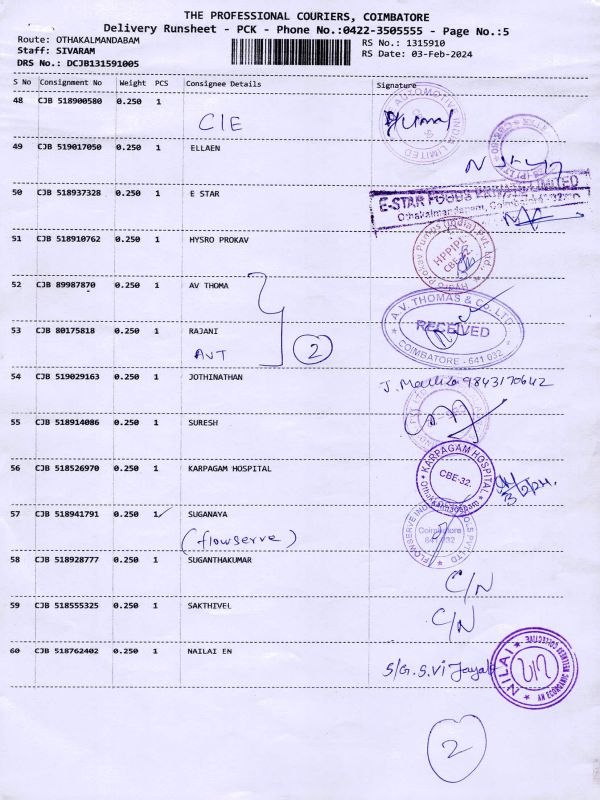 THE PROFESSIONAL COURIERS, COIMBATORE
Delivery Runsheet - PCK - Phone No.:0422-3505555 - Page No.:5
Route: OTHAKALMANDABAM RS No.: 1315910
Staff: SIVARAM RS Date: 03-Feb-2024
DRS No.: DCJB131591005
S No Consignment No Weight PCS Consignee Details Signature
48 CJB 518900580 0.250 1
CIE
AUTOMOTIVE INDIA LIMITED
49 CJB 519017050 0.250 1 ELLAEN
50 CJB 518937328 0.250 1 E STAR
E-STAR FOODS PRIVATE LIMITED
Othakalmandapam, Coimbatore
51 CJB 518910762 0.250 1 HYSRO PROKAV
Hydro Prokav Pumps (India) Pvt. Ltd.,
HPPIPL
CBE-32.
52 CJB 89987870 0.250 1 AV THOMA
A.V. THOMAS & Co. LTD.
RECEIVED
COIMBATORE - 641 032
53 CJB 80175818 0.250 1 RAJANI
AVT
2
54 CJB 519029163 0.250 1 JOTHINATHAN
9843170642
55 CJB 518914086 0.250 1 SURESH
56 CJB 518526970 0.250 1 KARPAGAM HOSPITAL
KARPAGAM HOSPITAL
CBE-32.
Othakkalmandapam
57 CJB 518941791 0.250 1 SUGANAYA
(flowserve)
Coimbatore
641 032
58 CJB 518928777 0.250 1 SUGANTHAKUMAR
C/N
59 CJB 518555325 0.250 1 SAKTHIVEL
C/N
60 CJB 518762402 0.250 1 NAILAI EN
S/G. S.Vi
NILAI
AN ECONOMIC WELLNESS COLLECTIVE
2